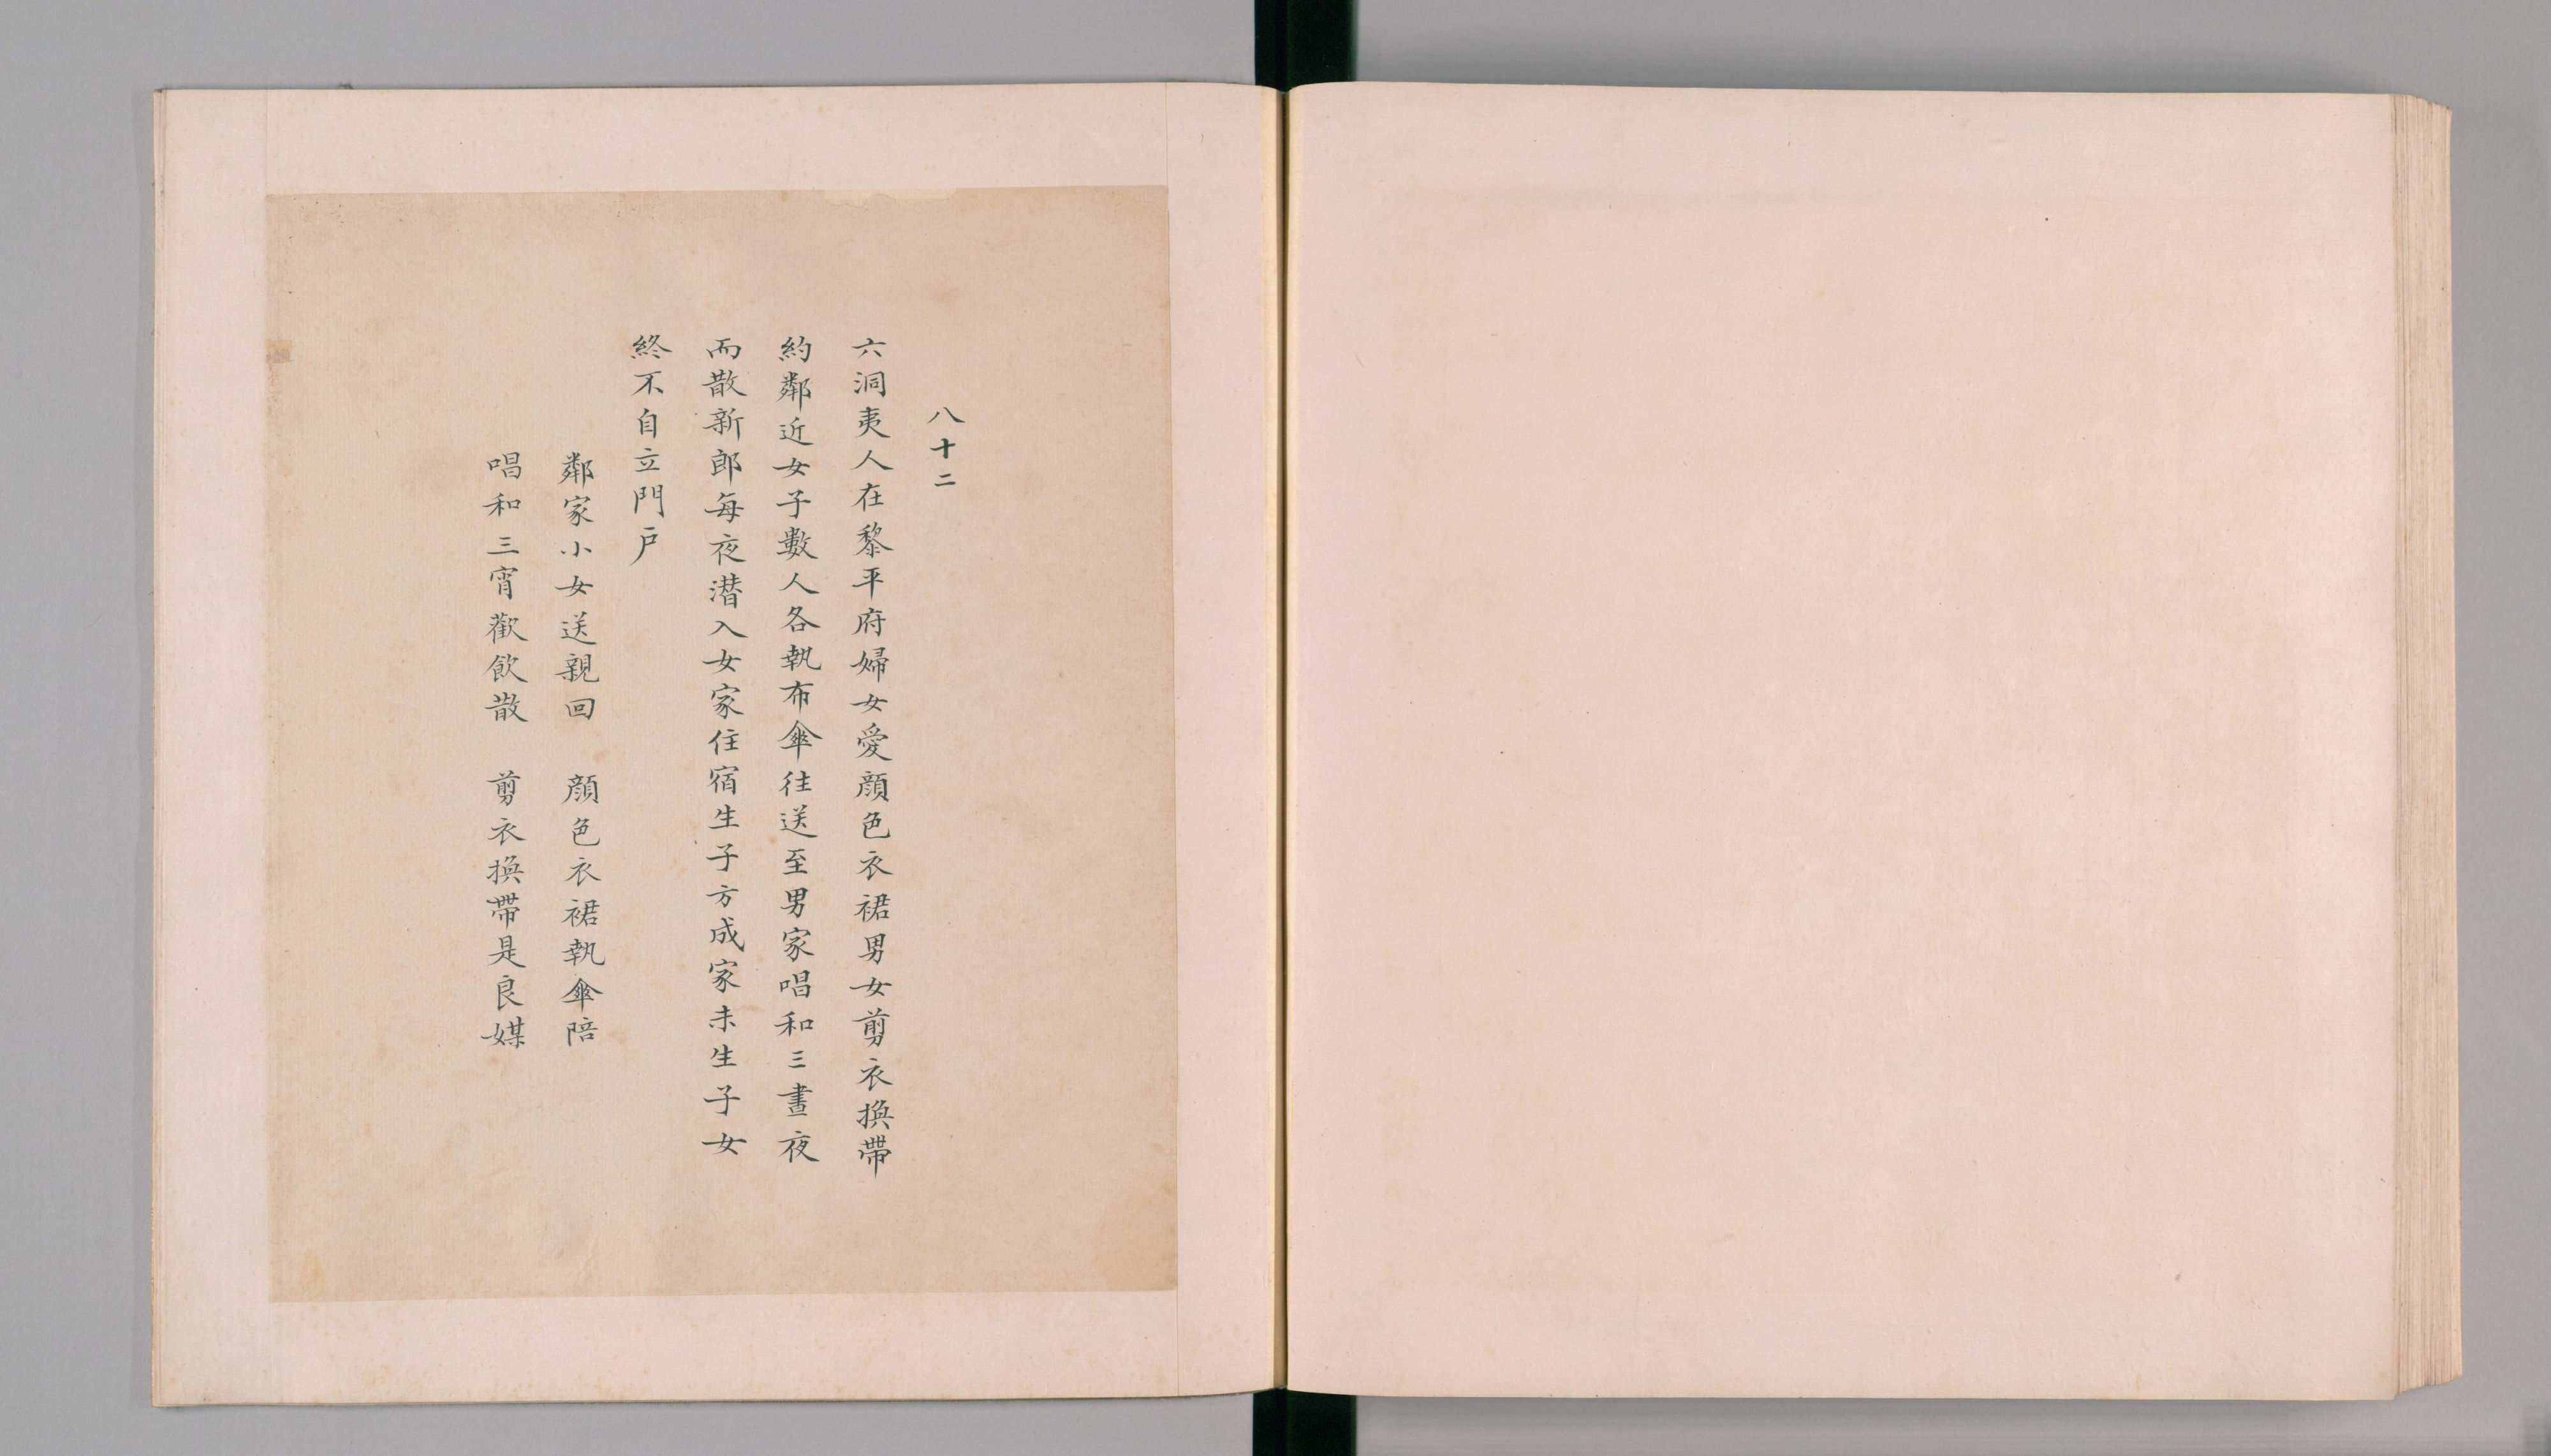 八十二
六洞夷人在黎平府婦女愛顔色衣裙男女剪衣換帶
約鄰近女子數人各執布傘往送至男家唱和三晝夜
而散新郎每夜潛入女家住宿生子方成家未生子女
終不自立門戶
鄰家小女送親回 顔色衣裙執傘陪
唱和三宵歡飲散 剪衣換帶是良媒